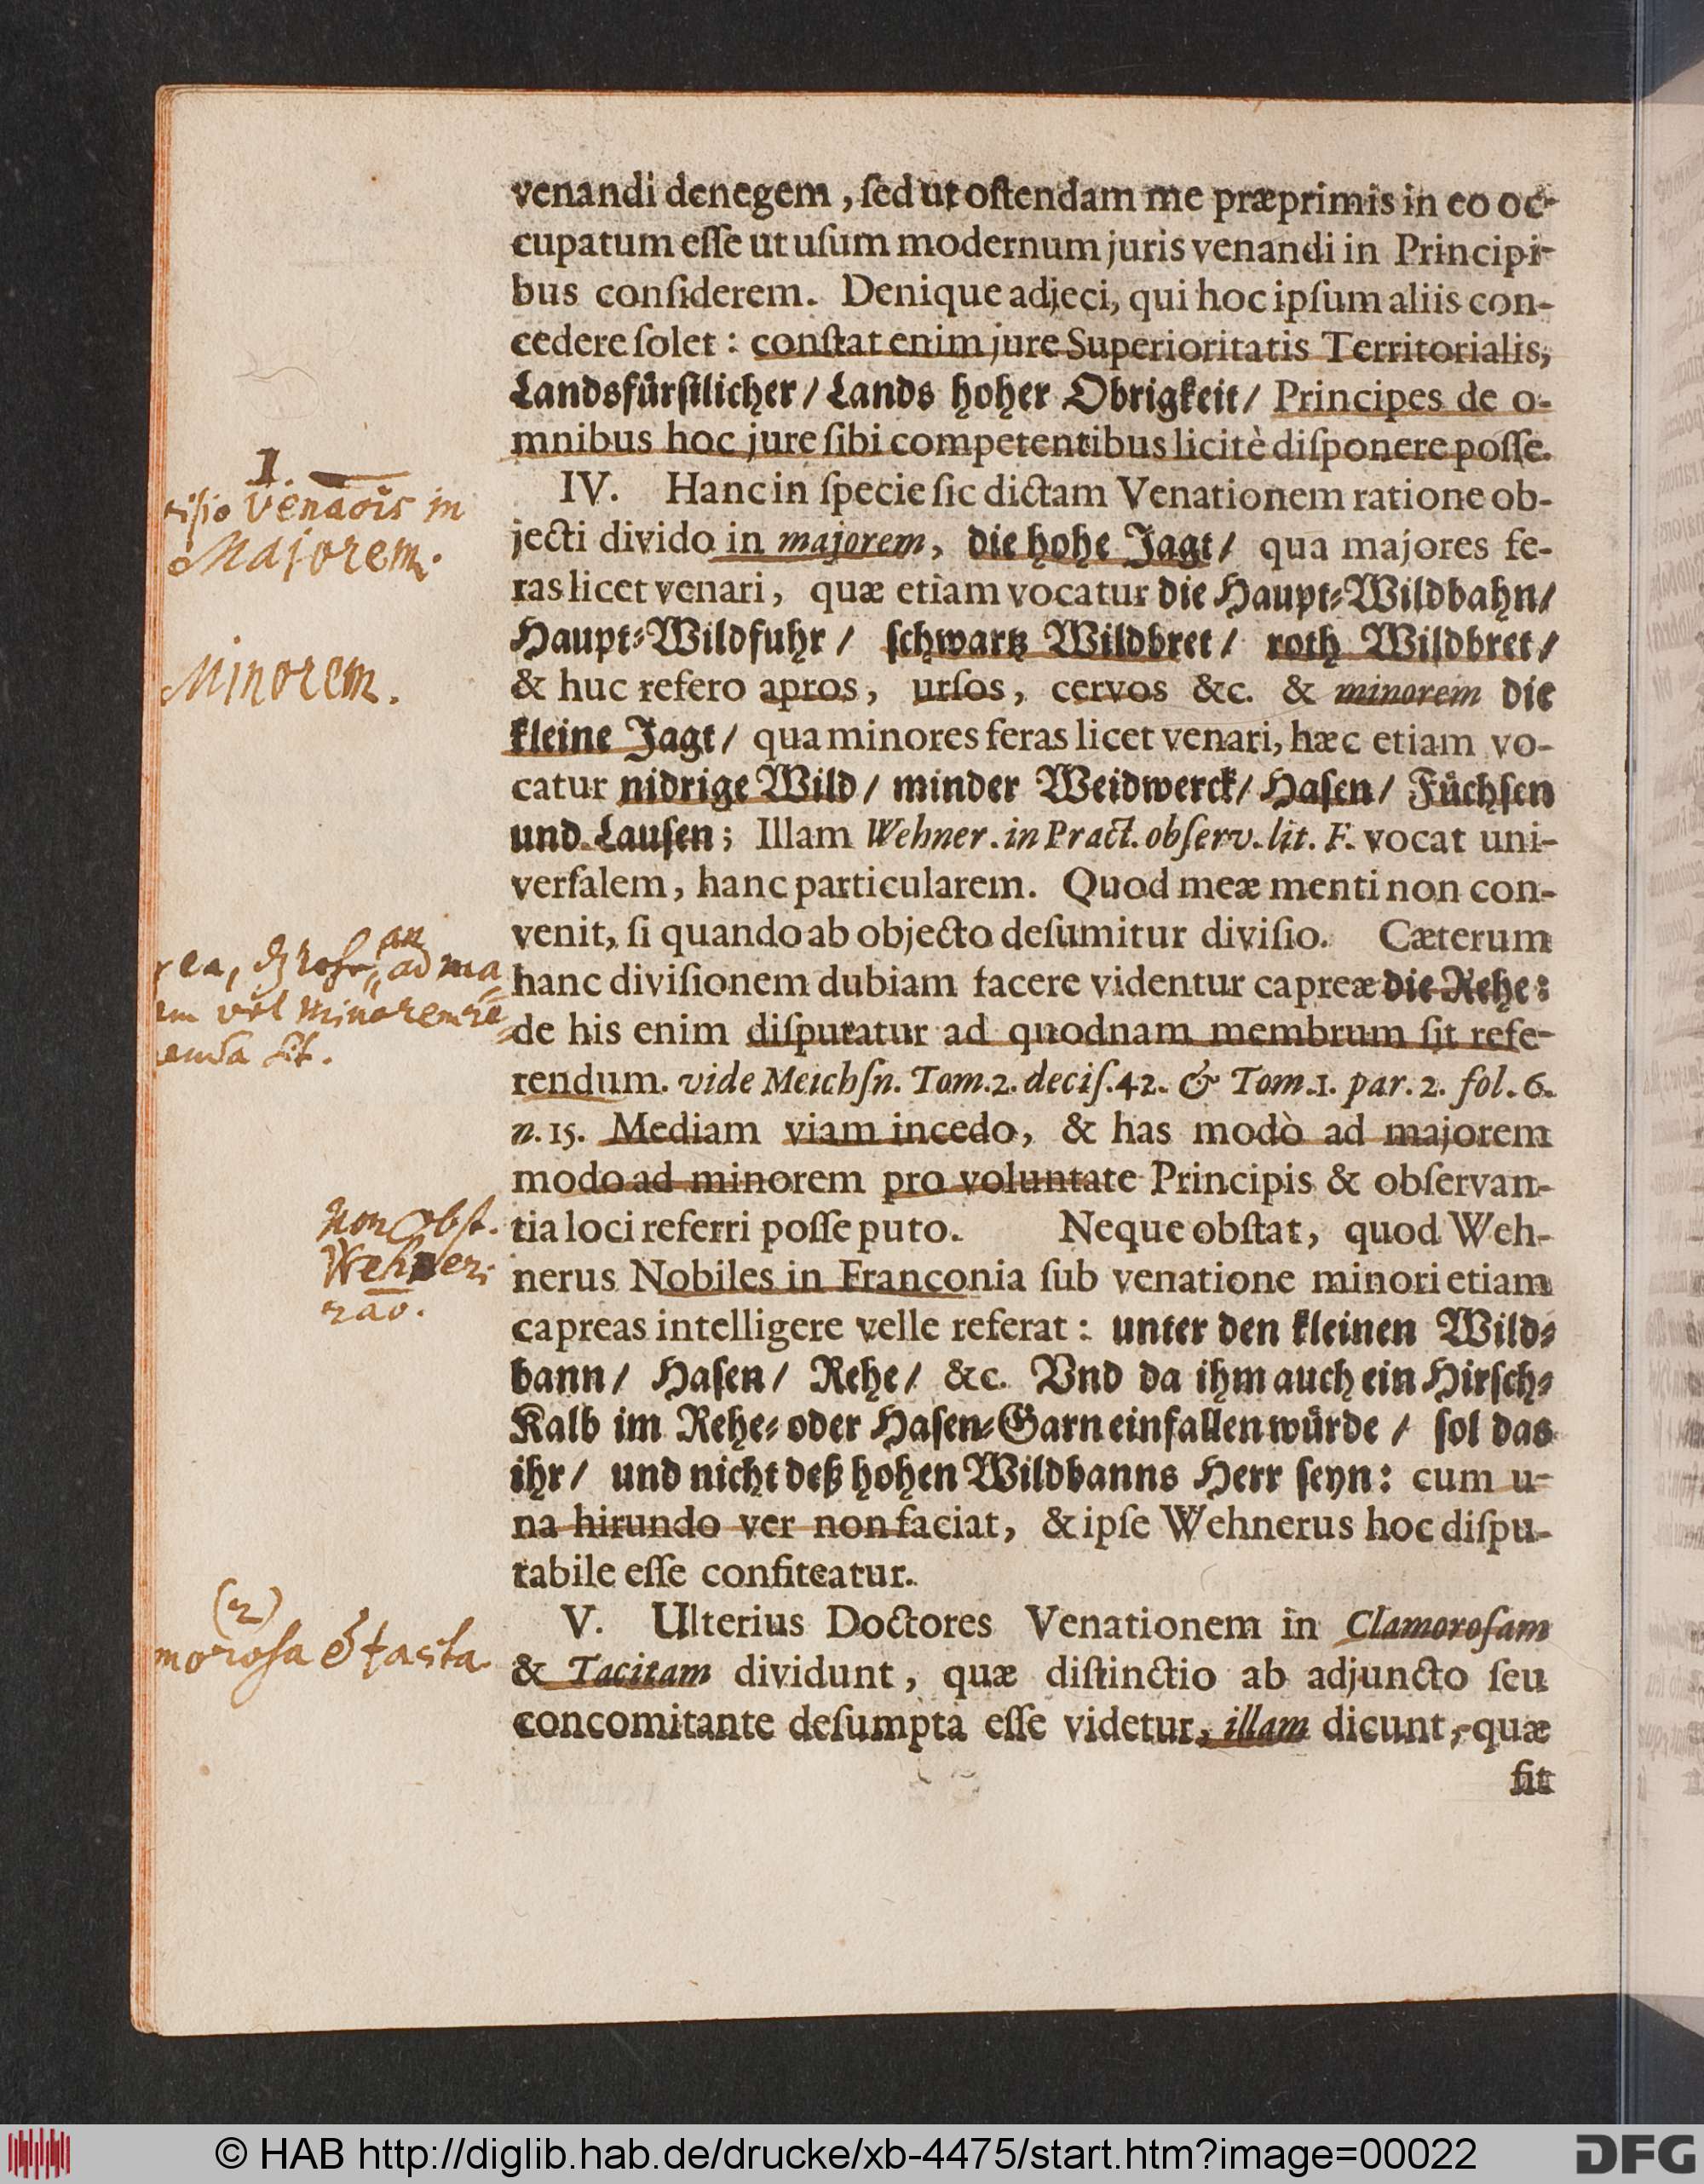 venandi denegem, ſed ut oſtendam me præprimis in eo oc-
cupatum eſſe ut uſum modernum juris venandi in Principi-
bus conſiderem. Denique adjeci, qui hoc ipſum aliis con-
cedere ſolet: conſtat enim jure Superioritatis Territorialis,
Landsfürſtlicher/ Lands hoher Obrigkeit/ Principes de o-
mnibus hoc jure ſibi competentibus licitè diſponere poſſe.
1.
venaõis in
Majorem.
IV. Hanc in ſpecie ſic dictam Venationem ratione ob-
jecti divido in majorem, die hohe Jagt/ qua majores fe-
ras licet venari, quæ etiam vocatur die Haupt-Wildbahn/
Haupt-Wildfuhr/ ſchwartz Wildbret/ roth Wildbret/
Minorem.
& huc refero apros, urſos, cervos &c. & minorem die
kleine Jagt/ qua minores feras licet venari, hæc etiam vo-
catur nidrige Wild/ minder Weidwerck/ Haſen/ Füchſen
und Lauſen; Illam Wehner. in Pract. obſerv. lit. F. vocat uni-
verſalem, hanc particularem. Quod meæ menti non con-
venit, ſi quando ab objecto deſumitur diviſio. Cæterum
an
ad ma
vel minorem re
ſit.
hanc diviſionem dubiam facere videntur capreæ die Rehe:
de his enim diſputatur ad quodnam membrum ſit refe-
rendum. vide Meichſn. Tom. 2. deciſ. 42. & Tom. 1. par. 2. fol. 6.
n. 15. Mediam viam incedo, & has modò ad majorem
modo ad minorem pro voluntate Principis & obſervan-
Non obſt.
Wehner:
rao.
tia loci referri poſſe puto. Neque obſtat, quod Weh-
nerus Nobiles in Franconia ſub venatione minori etiam
capreas intelligere velle referat: unter den kleinen Wild-
bann/ Haſen/ Rehe/ &c. Vnd da ihm auch ein Hirſch-
Kalb im Rehe- oder Haſen-Garn einfallen würde/ ſol das
ihr/ und nicht deß hohen Wildbanns Herr ſeyn: cum u-
na hirundo ver non faciat, & ipſe Wehnerus hoc diſpu-
tabile eſſe confiteatur.
(2)
moroſa & tacita.
V. Ulterius Doctores Venationem in Clamoroſam
& Tacitam dividunt, quæ diſtinctio ab adjuncto ſeu
concomitante deſumpta eſſe videtur, illam dicunt, quæ
fit
© HAB http://diglib.hab.de/drucke/xb-4475/start.htm?image=00022
DFG